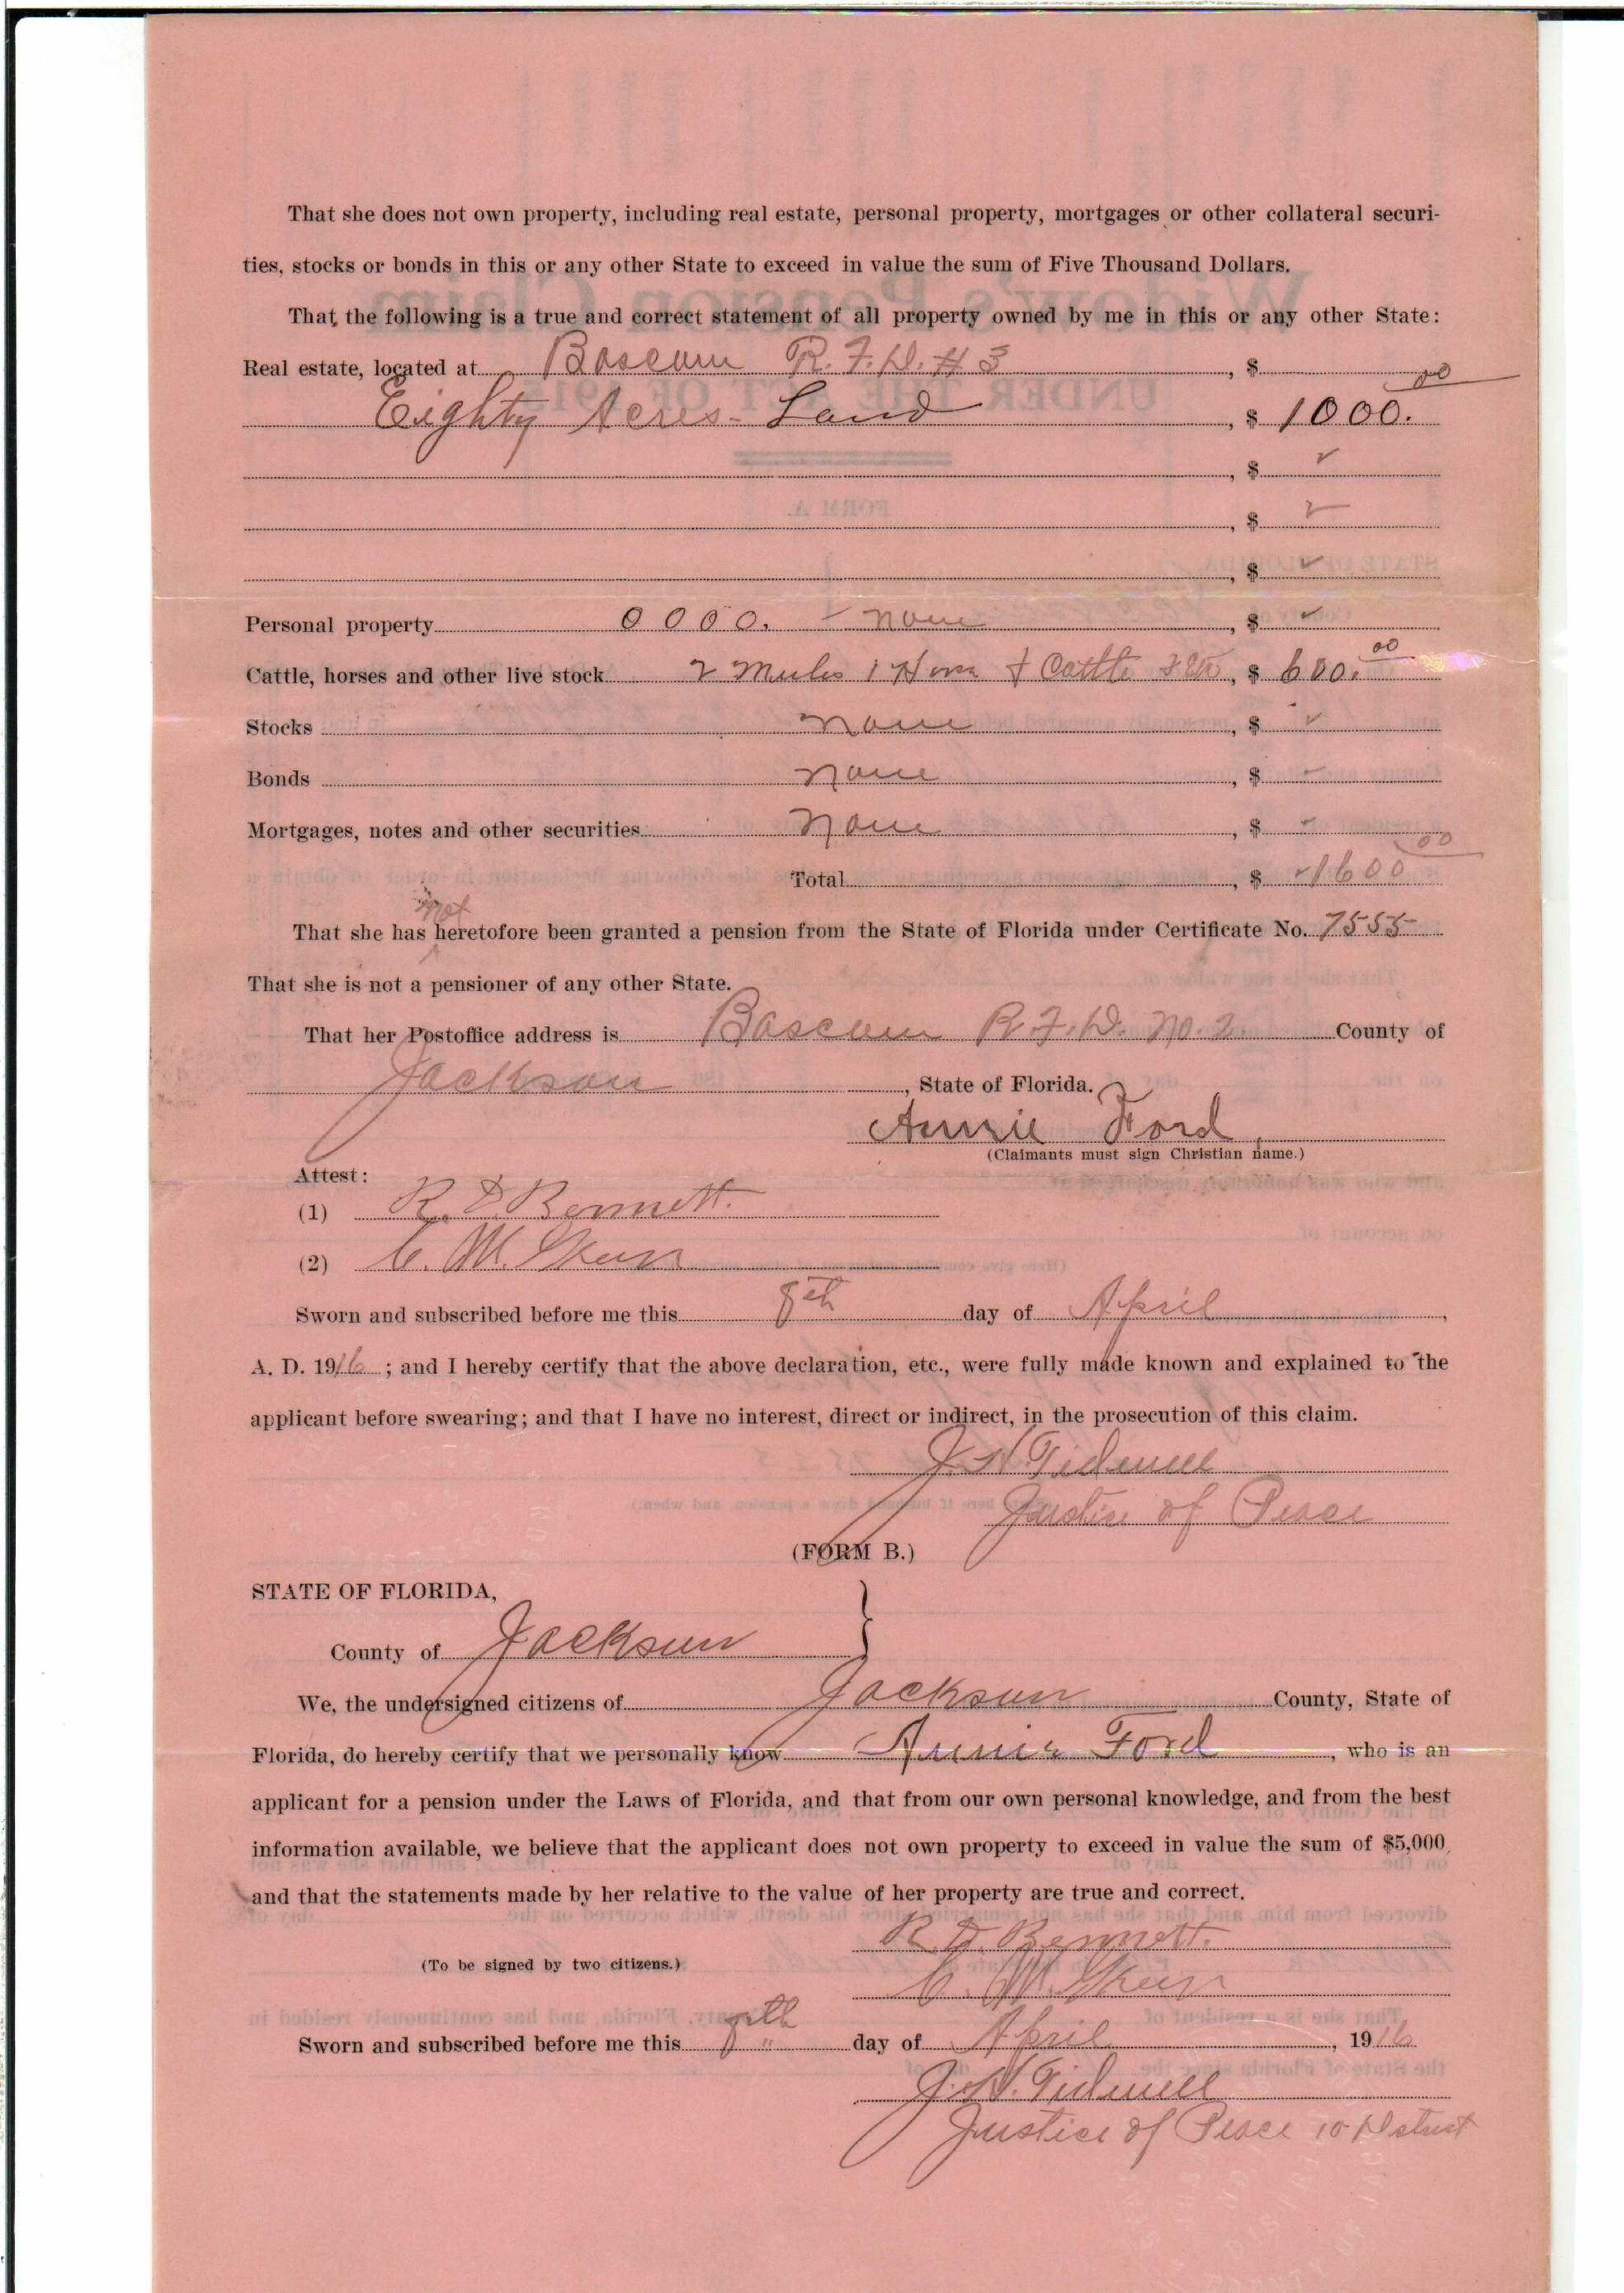 That she does not own property, including real estate, personal property, mortgages or other collateral securi-
ties, stocks or bonds in this or any other State to exceed in value the sum of Five Thousand Dollars.
That the following is a true and correct statement of all property owned by me in this or any other State:
Real estate, located at Bascum R.F.D. # 3, $
Eighty Acres- Land, $ 1000.00
, $
, $
, $
Personal property 0 0 0 0. - none, $
Cattle, horses and other live stock 2 Mules 1 Horse & Cattle, $ 600.00
Stocks none, $
Bonds none, $
Mortgages, notes and other securities None, $
Total, $ 1600 00
not
That she has heretofore been granted a pension from the State of Florida under Certificate No. 7555
That she is not a pensioner of any other State.
That her Postoffice address is Bascum R.F.D. No. 2 County of
Jackson, State of Florida.
Annie Ford
(Claimants must sign Christian name.)
Attest:
(1) R. D. Bennett.
(2) C. M.
Sworn and subscribed before me this 8th day of April,
A. D. 1916; and I hereby certify that the above declaration, etc., were fully made known and explained to the
applicant before swearing; and that I have no interest, direct or indirect, in the prosecution of this claim.
J. N. Tidwell
Justice of Peace
(FORM B.)
STATE OF FLORIDA,
County of Jackson }
We, the undersigned citizens of Jackson County, State of
Florida, do hereby certify that we personally know Annie Ford, who is an
applicant for a pension under the Laws of Florida, and that from our own personal knowledge, and from the best
information available, we believe that the applicant does not own property to exceed in value the sum of $5,000,
and that the statements made by her relative to the value of her property are true and correct.
R. D. Bennett.
(To be signed by two citizens.)
C. M.
Sworn and subscribed before me this 8th day of April, 1916
J. N. Tidwell
Justice of Peace 10 District